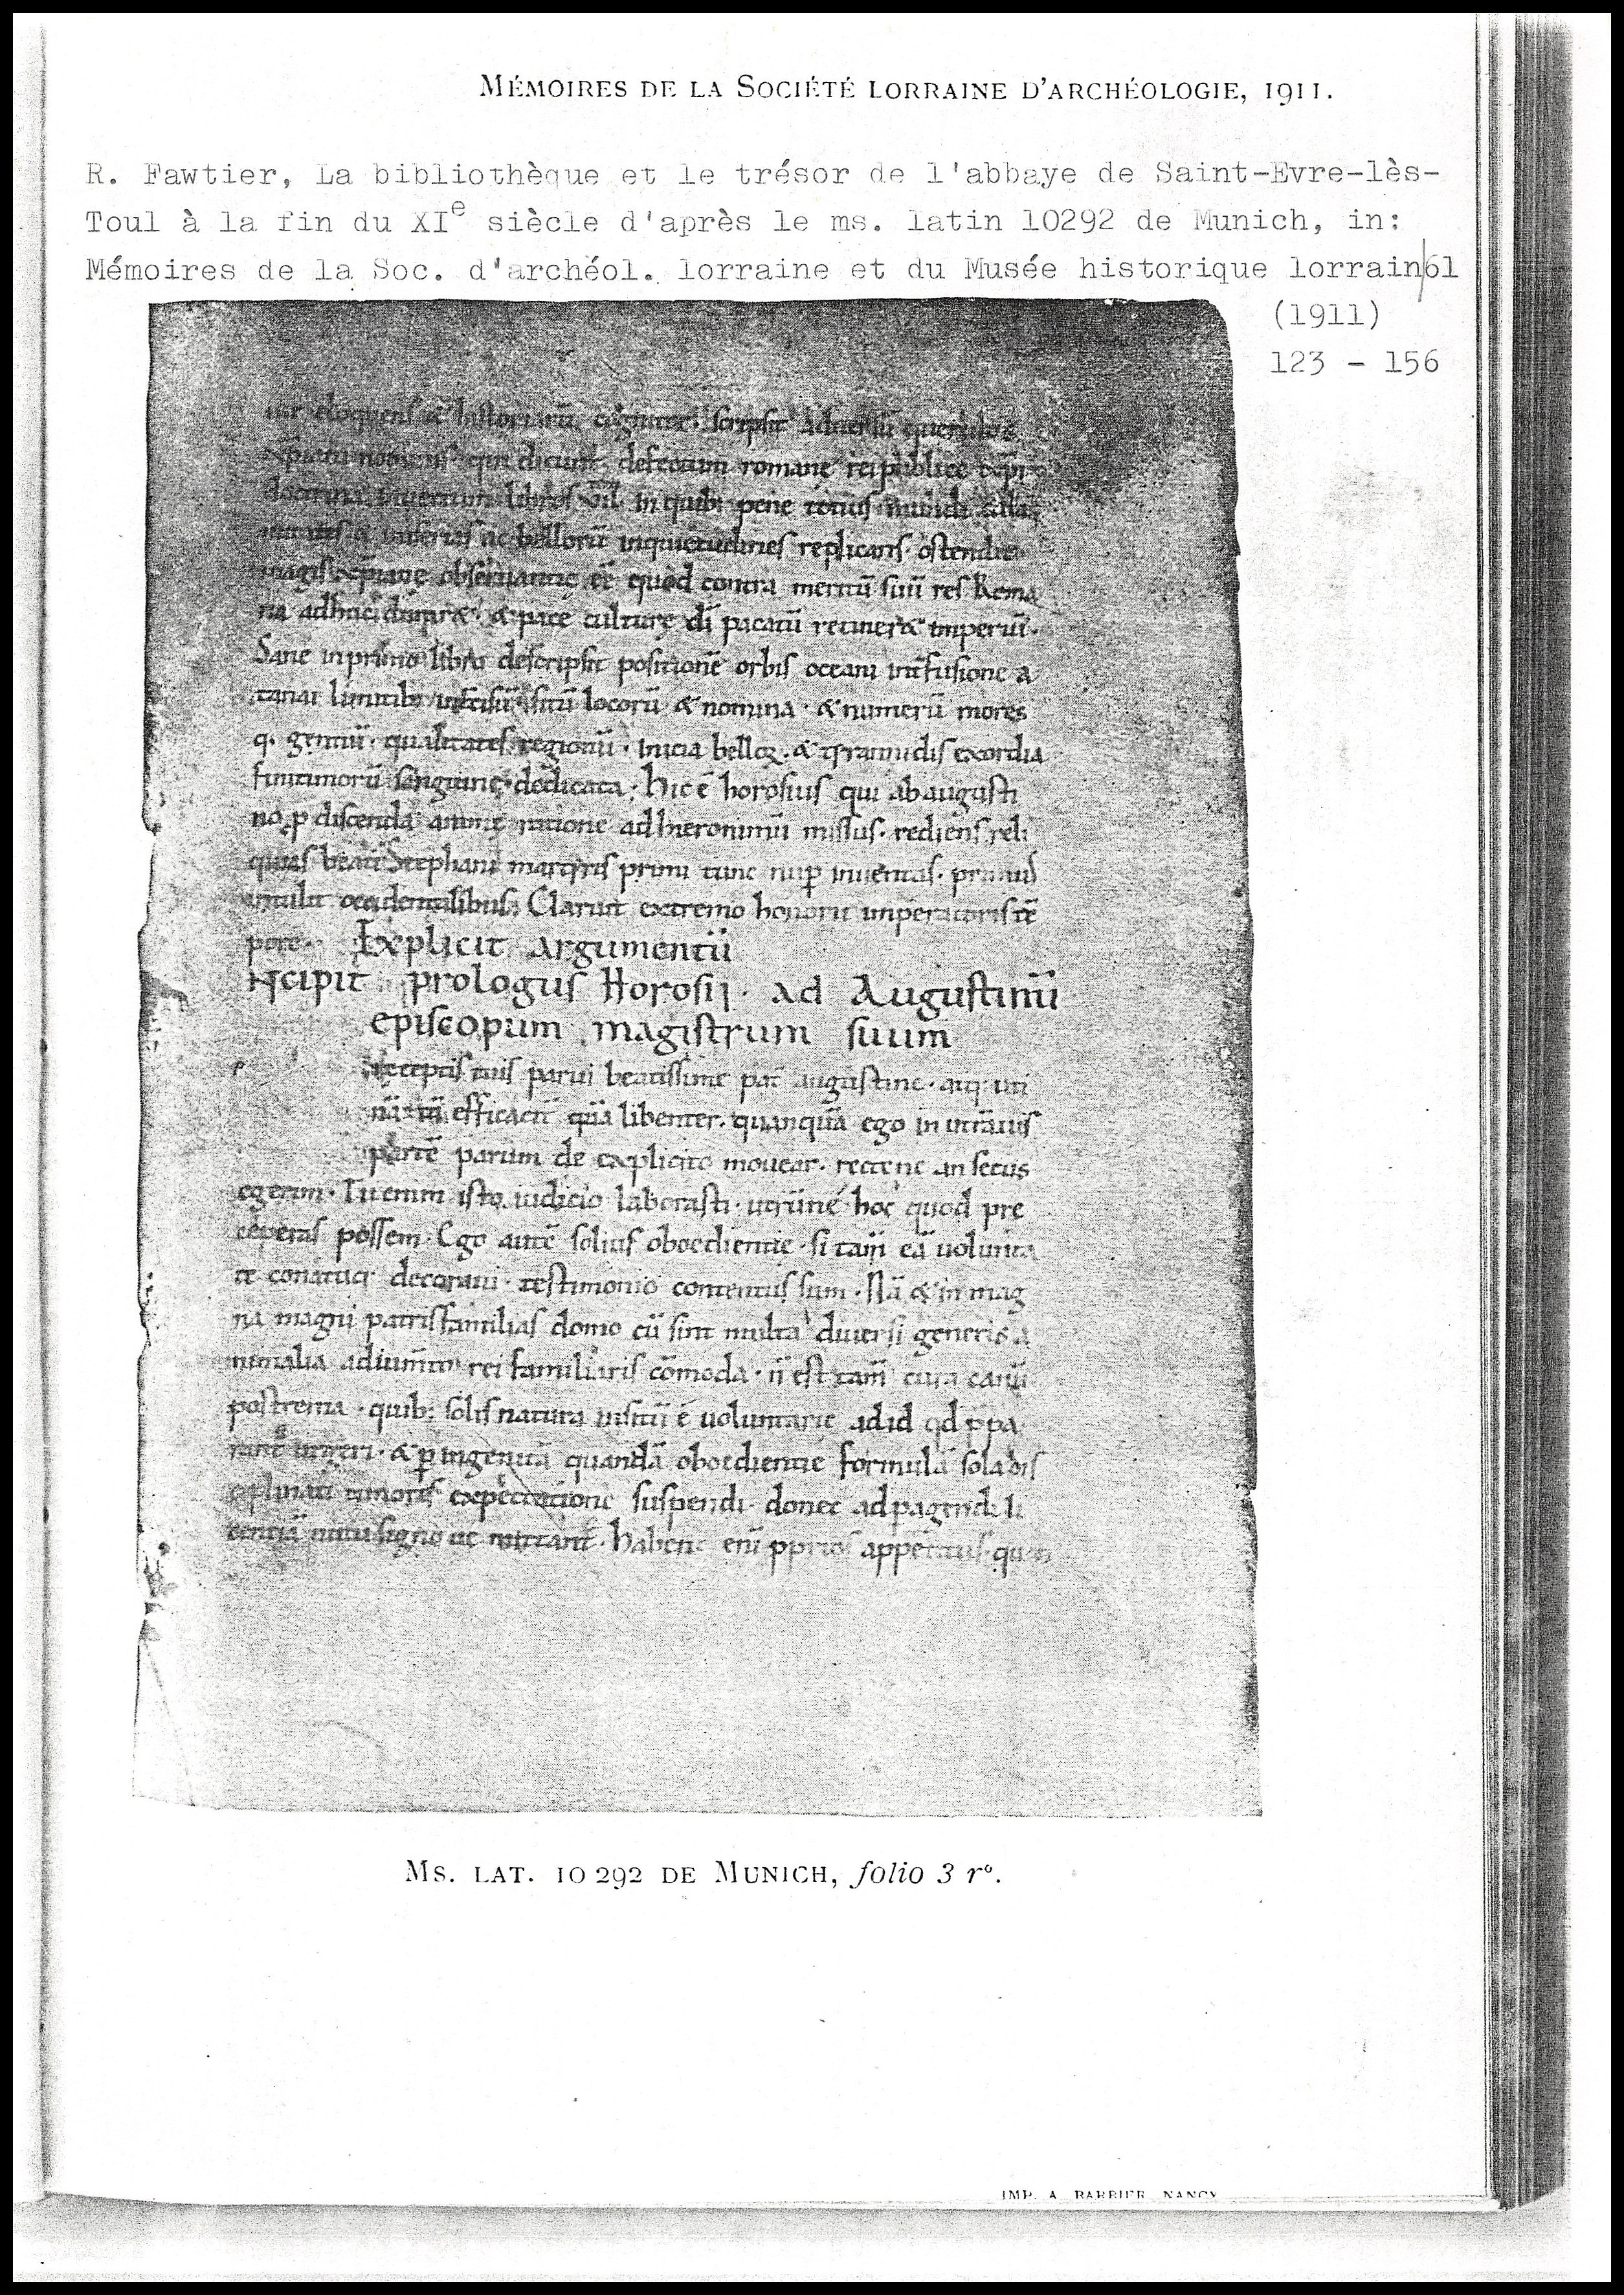 MÉMOIRES DE LA SOCIÉTÉ LORRAINE D'ARCHÉOLOGIE, 1911.
R. Fawtier, La bibliothèque et le trésor de l'abbaye de Saint-Evre-lès-
Toul à la fin du XIe siècle d'après le ms. latin 10292 de Munich, in:
Mémoires de la Soc. d'archéol. lorraine et du Musée historique lorrain/61
(1911)
123 - 156
eloquens & historiarū cognitor. scripsit adversū querulos
qui dicunt defectum romanę rei publicę
libros VII. in quib; pene totius mundi
& miserias ac bellorū inquietudines replicans. ostendit
magis obseruantię ēē quod contra meritū suū res Roma
na adhuc & pace culturę dī pacatū retiner& imperiū.
Sane in primo libro descripsit positionē orbis oceani int̄fusione &
tanai limitib; intercisū situ locorū & nomina. & numerū mores
q. gentiū. qualitates regionū. Inicia belloꝝ. & tyrannidis exordia
finitimorū sanguine dedicata. hic ē horosius qui ab augusti
no p discenda animę ratione ad hieronimū missus. rediens reli
quias beati Stephani martyris primi tunc nup inuentas. primus
intulit occidentalibus. Claruit extremo honorii imperatoris tē
pore. Explicit argumentū
Ncipit prologus Horosij. ad Augustinū
episcopum magistrum suum
p receptis tuis parui beatissime pat̄ augustine. atq; uti
nā tā efficacit̄ quā libenter. quanquā ego in utrāuis
partē parum de explicito mouear. rectene an secus
egerim. Tu enim isto iudicio laborasti. utrūne hoc quod pre
ceperas possem. Ego autē solius oboedientię. si tam̄ eā uolunta
te conatuq; decoraui. testimonio contentus sum. Nā & in mag
na magni patrisfamilias domo cū sint multa diuersi generis a
nimalia adium̄to rei familiaris cōmoda. n̄ est tam̄ cura canū
postrema. quib; solis natura insitū ē uoluntarie ad id qd ppa
rant̄ urgeri. & p ingenitā quandā oboedientię formulā sola dis
ciplinati timoris expectatione suspendi. donec ad pagendi li
centiā nutu signo ue mittant̄. habent enī pprios appetitus. quan
MS. LAT. 10 292 DE MUNICH, folio 3 r°.
IMP. A. BARBIER, NANCY